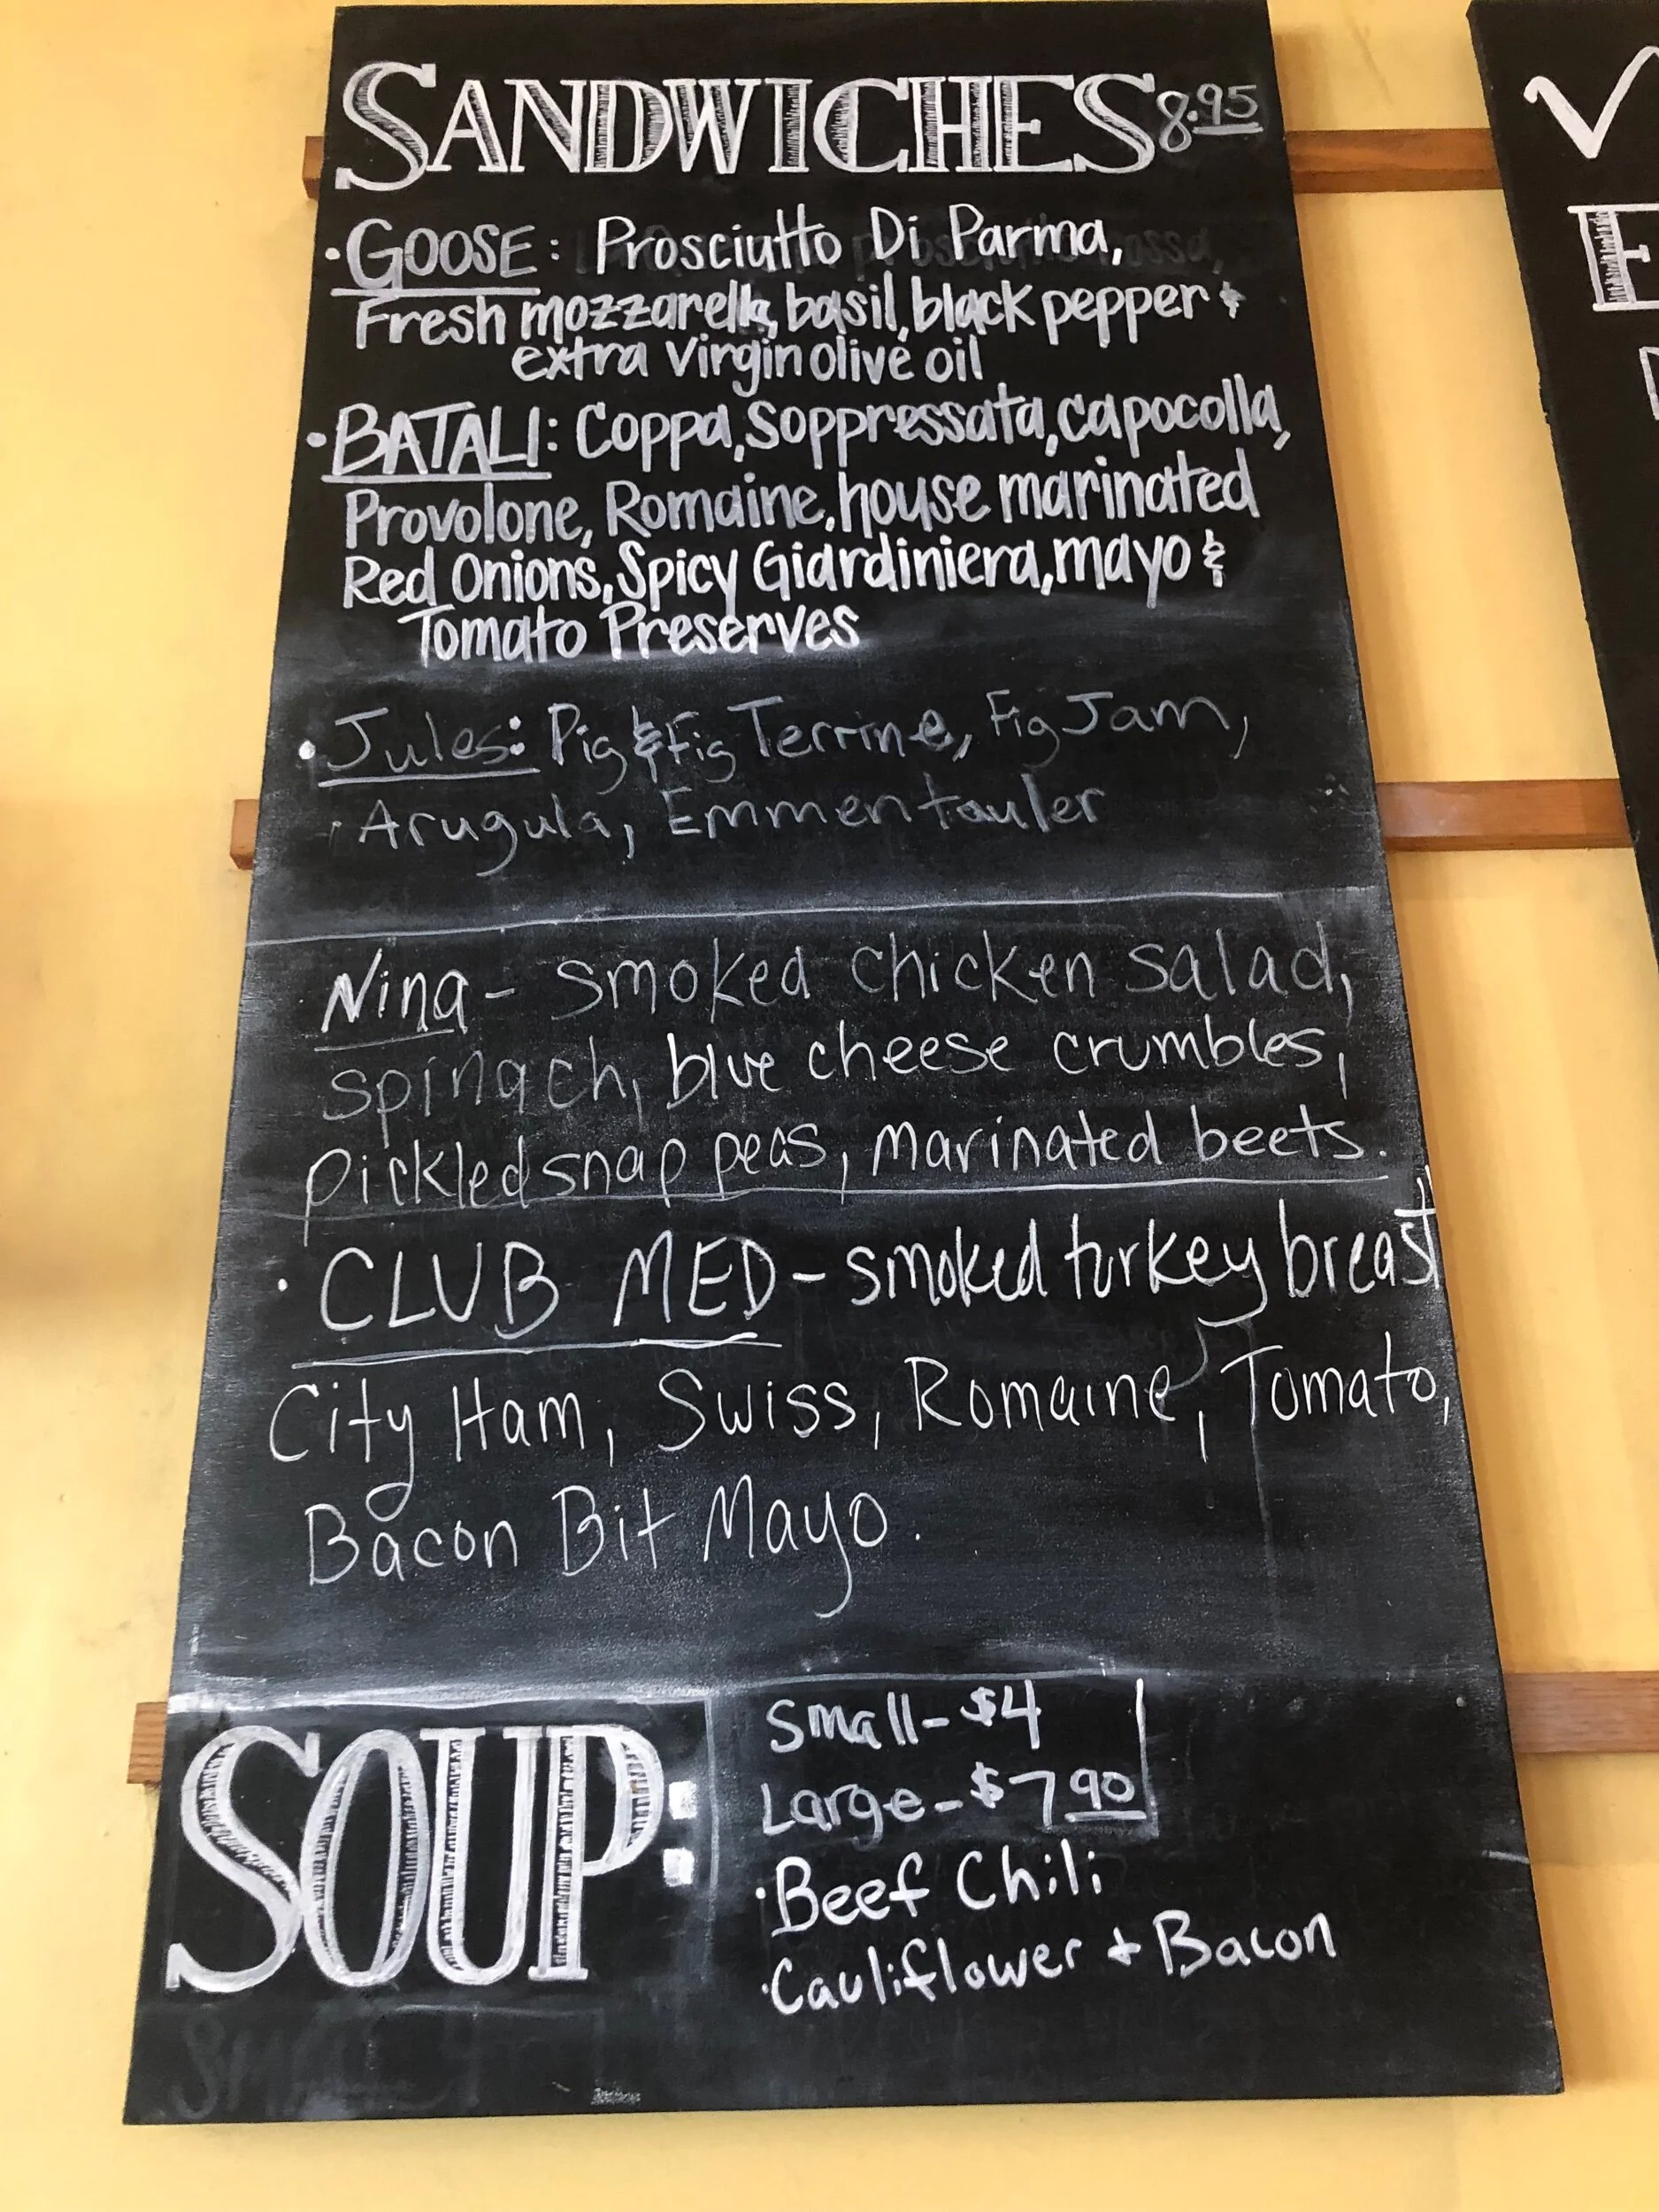 SANDWICHES 8.95
• GOOSE: Prosciutto Di Parma,
Fresh mozzarella, basil, black pepper &
extra virgin olive oil
• BATALI: Coppa, Soppressata, capocolla,
Provolone, Romaine, house marinated
Red Onions, Spicy Giardiniera, mayo &
Tomato Preserves
• Jules: Pig & Fig Terrine, Fig Jam,
Arugula, Emmentauler
Nina - smoked chicken salad,
spinach, blue cheese crumbles,
pickled snap peas, marinated beets.
• CLUB MED - smoked turkey breast
City Ham, Swiss, Romaine, Tomato,
Bacon Bit Mayo.
SOUP:
Small - $4
Large - $7 90
• Beef Chili
• Cauliflower + Bacon